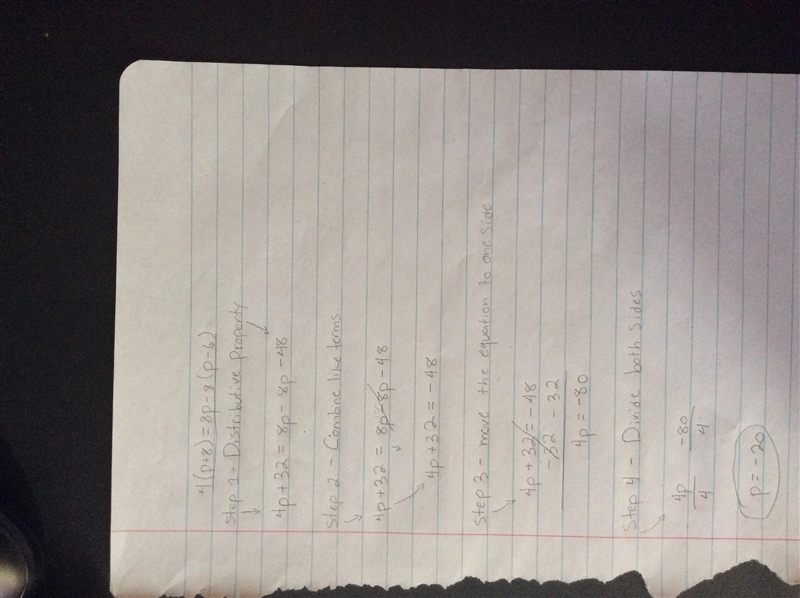 4(p+8)=8p-8(p-6)
Step 1 - Distributive Property
4p+32 = 8p-8p-48
Step 2 - Combine like terms
4p+32 = 8p-8p-48
4p+32 = -48
Step 3 - move the equation to one side
4p+32 = -48
-32 -32
4p = -80
Step 4 - Divide both sides
4p -80
4 4
p = -20